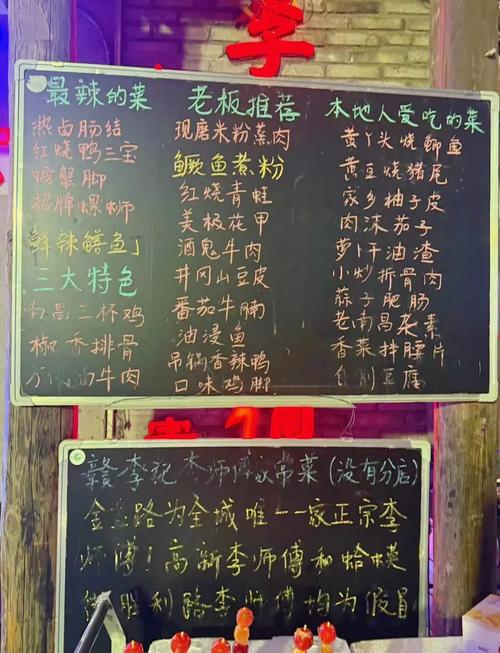 李
最辣的菜
热卤肠结
红烧鸭三宝
螃蟹脚
招牌螺蛳
鲜辣鳝鱼
三大特色
三杯鸡
椒香排骨
牛肉
老板推荐
现磨米粉蒸肉
鳜鱼煮粉
红烧青蛙
美极花甲
酒鬼牛肉
井冈山豆皮
番茄牛腩
油浸鱼
吊锅香辣鸭
口味鸡脚
本地人爱吃的菜
黄丫头烧鲫鱼
黄豆烧猪尾
家乡柚子皮
肉沫茄子
萝卜干油渣
小炒折骨肉
蒜子肥肠
老南昌杂素
香菜拌腰片
自制豆腐
赣李记李师傅家常菜(没有分店)
路为全城唯一一家正宗李
师傅!高新李师傅和蛤蟆
街胜利路李师傅均为假冒